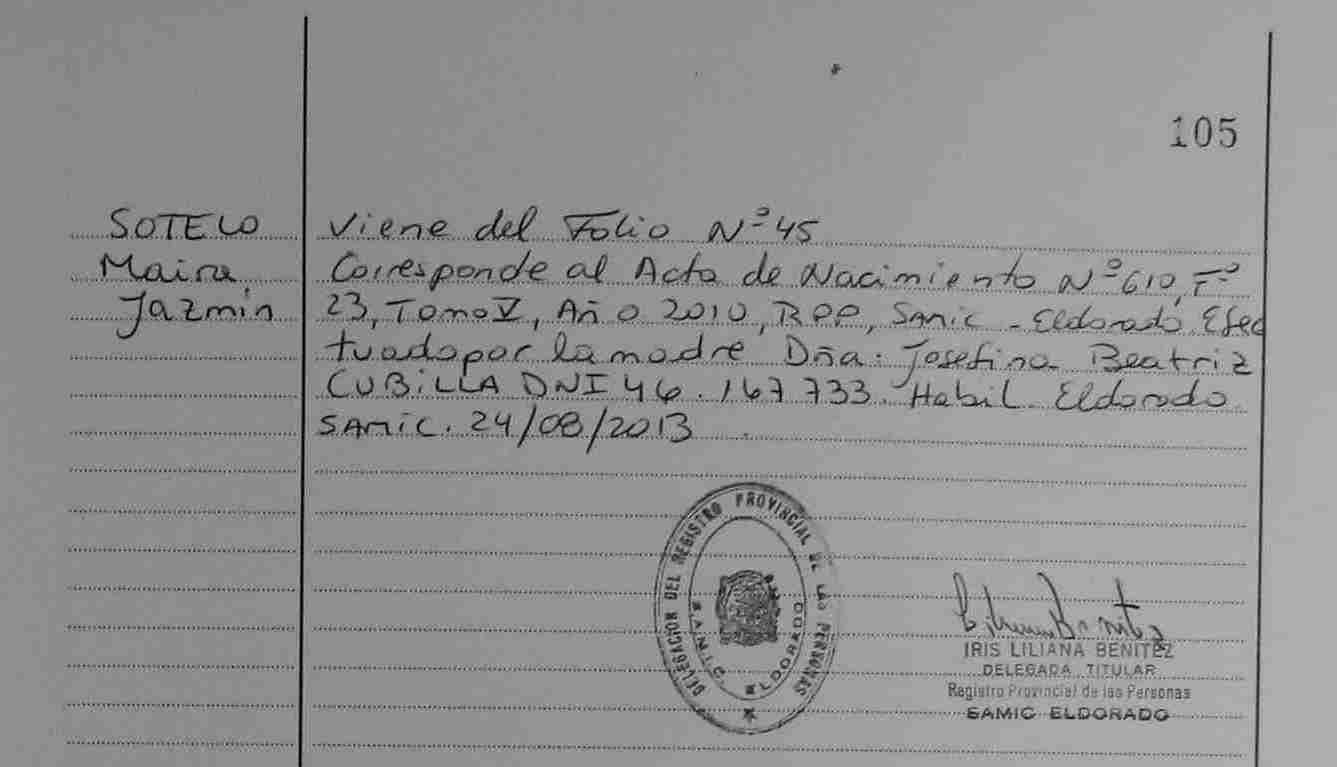 105
SOTELO Viene del Folio Nº 45
Maira Corresponde al Acta de Nacimiento Nº 610, Fº
Jazmin 23, Tomo V, Año 2010, RPP, Samic - Eldorado Efec
tuado por la madre Dña: Josefina Beatriz
CUBILLA DNI 46.167733. Habil. Eldorado
SAMIC. 24/08/2013
DELEGACION DEL REGISTRO PROVINCIAL DE LAS PERSONAS
S.A.M.I.C. ELDORADO
IRIS LILIANA BENITEZ
DELEGADA TITULAR
Registro Provincial de las Personas
SAMIC ELDORADO